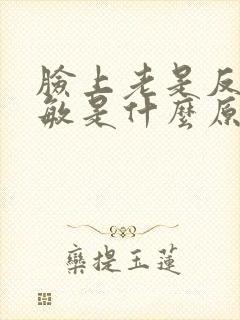 臉上老是反
敏是什麼原
欒提玉蓮